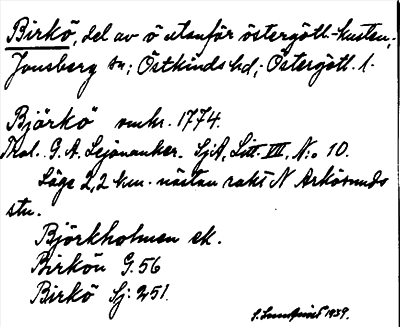 Birkö, del av ö utanför östergötl.-kusten,
Jonsberg sn; Östkinds hd; Östergötl. l.
Björkö omkr. 1774.
Trol. G. A. Lejonanker. SjA, Litt. VIII, N:o 10.
Läge 2,2 km. nästan rakt N Arkösunds
stn.
Björkholmen ek.
Birkön G. 56
Birkö Sj: 251.
1939.